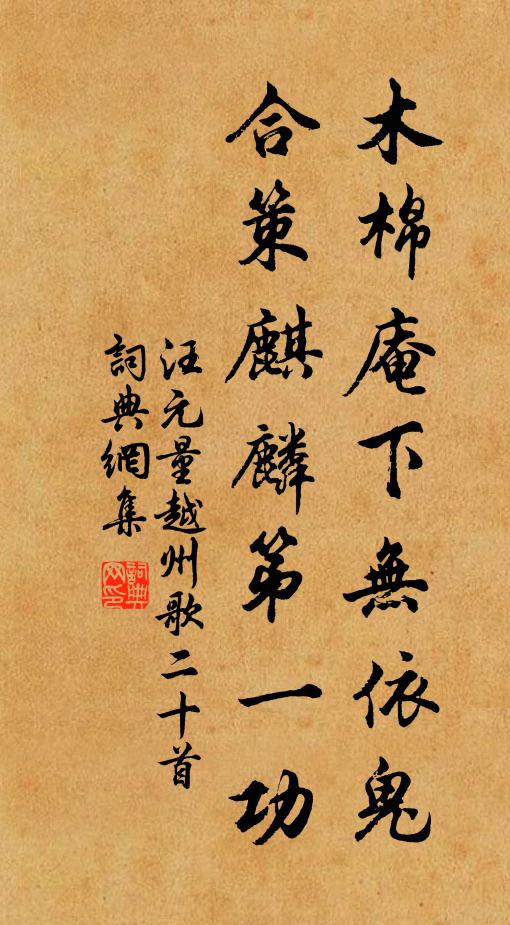 木棉庵下無依鬼
合策麒麟第一功
汪元量越州歌二十首
詞典網集
詞典網印